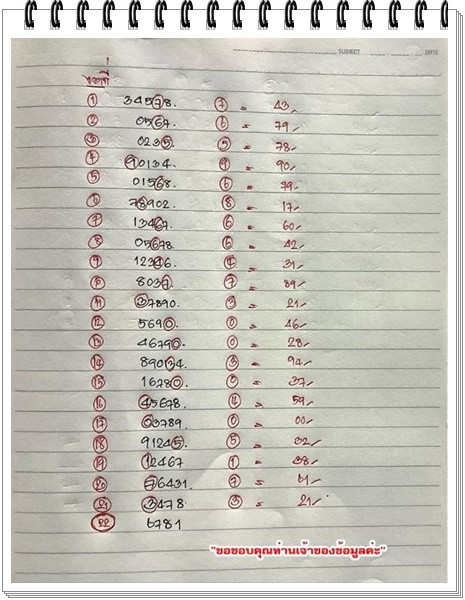 SUBJECT DATE
๑ 34578. ๗ = 43
๒ 0567. ๖ = 79
๓ 0235. ๕ = 78
๔ 90134. ๙ = 90
๕ 01568. ๖ = 79
๖ 76902. ๘ = 17
๗ 13467. ๖ = 60
๘ 05678 ๖ = 42
๙ 12346. ๔ = 31
๑๐ 8037. ๗ = 89
๑๑ 37890. 3 = 21
12 5690. 0 = 46
13 46790. 0 = 28
14 89034. 3 = 94
15 16780. 0 = 37
16 45678. = 59
17 03789. 0 = 00
18 91245. 5 = 32
19 12467 ๑ = 38
๒๐ 76431. ๗ = ๖1
๒๑ 3478. 3 = 21
๒๒ 6781
"ขอขอบคุณท่านเจ้าของข้อมูลค่ะ"